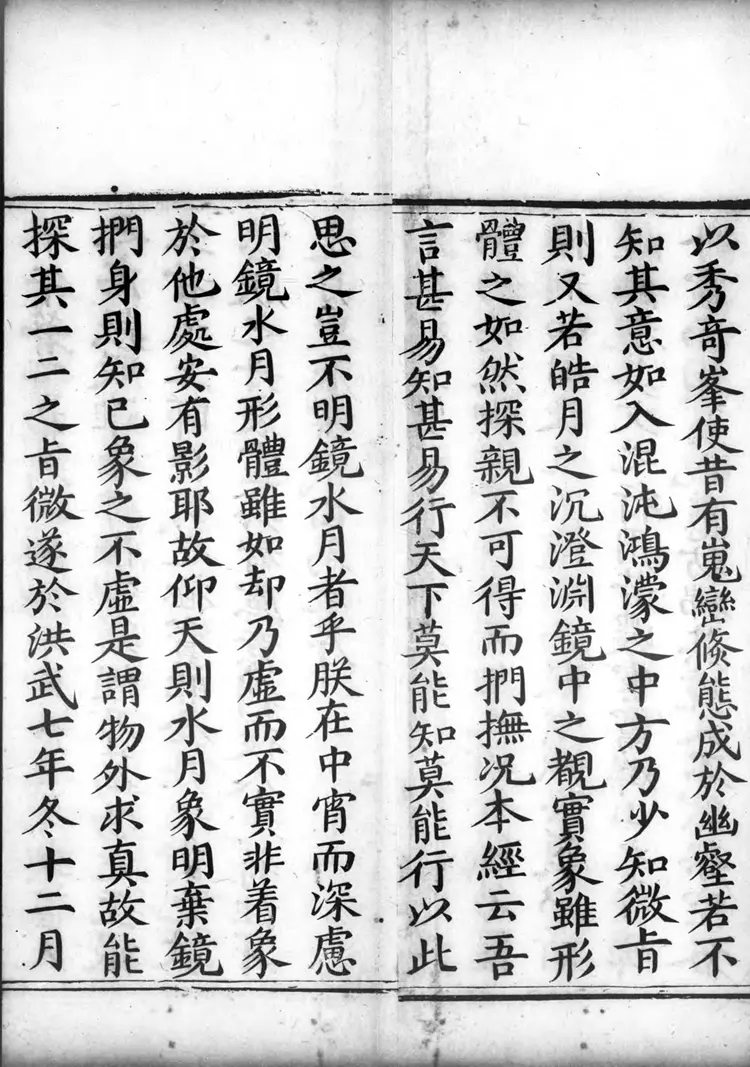 以秀奇峯使昔有嵬巒倐態成於幽壑若不
知其意如入混沌鴻濛之中方乃少知微㫖
則又若皓月之沉澄淵鏡中之覩實象雖形
體之如然探親不可得而捫撫况本經云吾
言甚易知甚易行天下莫能知莫能行以此
思之豈不明鏡水月者乎朕在中宵而深慮
明鏡水月形體雖如却乃虛而不實非着象
於他處安有影耶故仰天則水月象明棄鏡
捫身則知已象之不虛是謂物外求真故能
探其一二之㫖微遂於洪武七年冬十二月